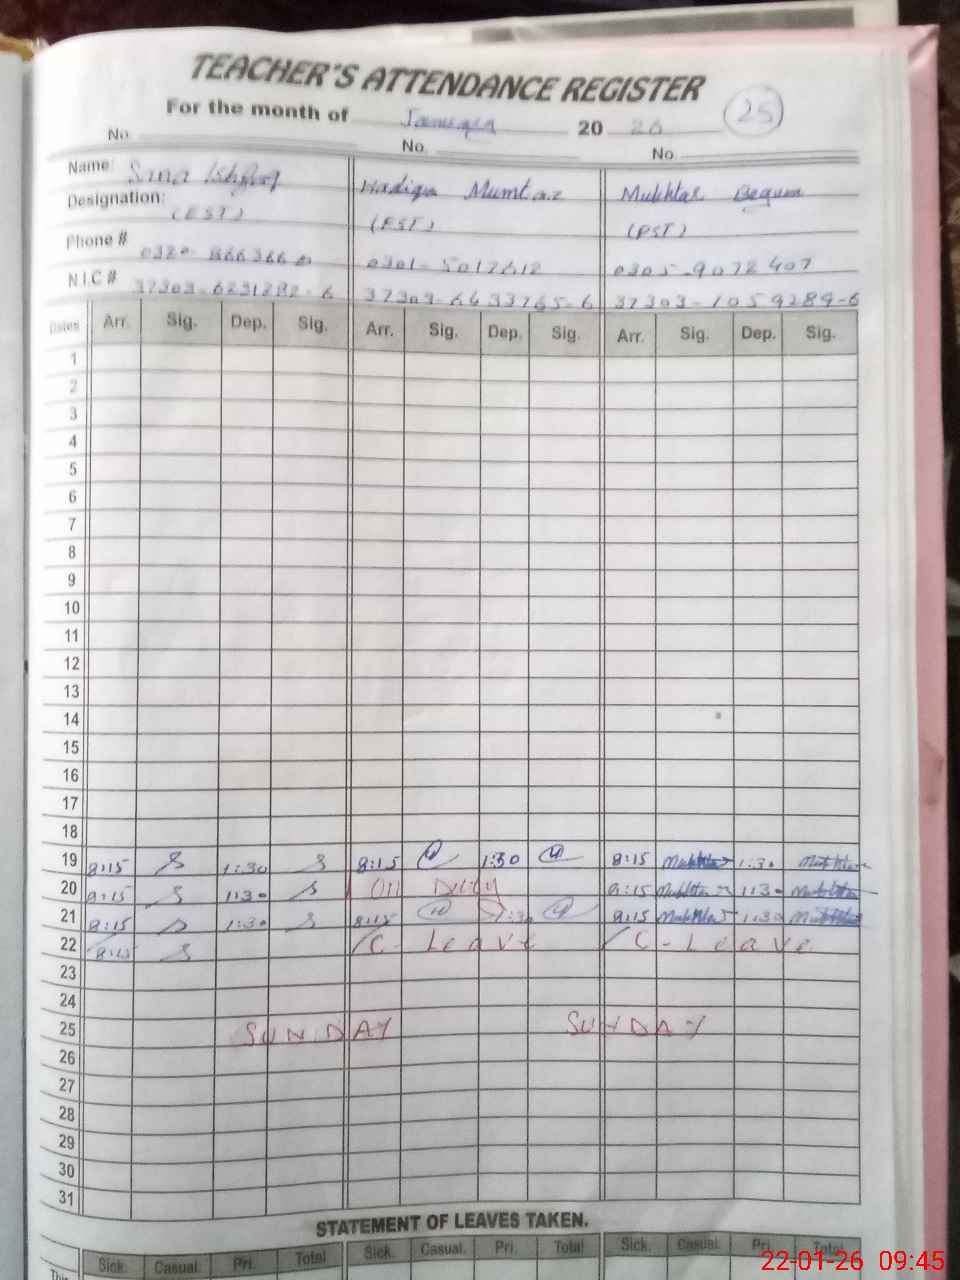 TEACHER'S ATTENDANCE REGISTER
For the month of January 20 26 25
No. No. No.
Name: Sana Ishfaq Hadiqa Mumtaz Mukhtar Begum
Designation: (EST) (EST) (PST)
Phone # 0301-5017612 0305-9072407
N.I.C # 37303-6231282-6 37303-6433765-6 37303-1059289-6
Dates Arr. Sig. Dep. Sig. Arr. Sig. Dep. Sig. Arr. Sig. Dep. Sig.
1
2
3
4
5
6
7
8
9
10
11
12
13
14
15
16
17
18
19 8:15 1:30 8:15 1:30 8:15 Mukhtar 1:30 Mukhtar
20 8:15 1:30 On Duty 8:15 Mukhtar 1:30 Mukhtar
21 8:15 1:30 8:15 1:30 8:15 Mukhtar 1:30 Mukhtar
22 8:15 C-Leave C-Leave
23
24
25 SUNDAY SUNDAY
26
27
28
29
30
31
STATEMENT OF LEAVES TAKEN.
Sick. Casual. Pri. Total Sick. Casual. Pri. Total Sick. Casual. Pri. Total
This
22-01-26 09:45